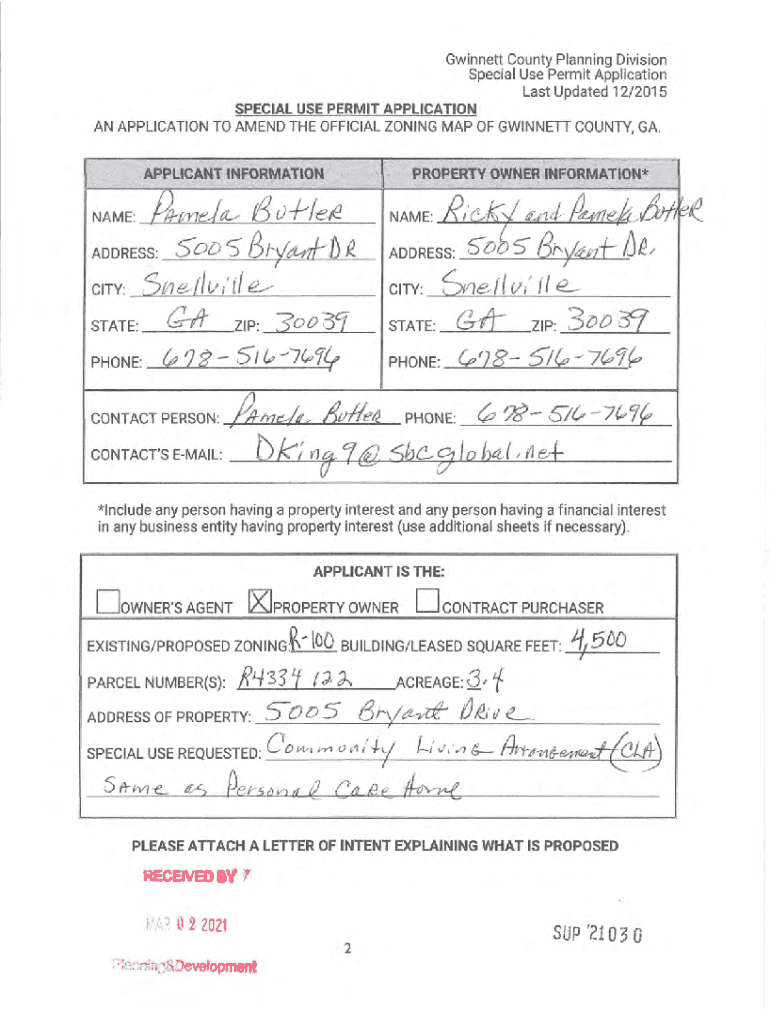 Gwinnett County Planning Division
Special Use Permit Application
Last Updated 12/2015
SPECIAL USE PERMIT APPLICATION
AN APPLICATION TO AMEND THE OFFICIAL ZONING MAP OF GWINNETT COUNTY, GA.
APPLICANT INFORMATION PROPERTY OWNER INFORMATION*
NAME: Pamela Butler NAME: Ricky and Pamela Butler
ADDRESS: 5005 Bryant DR ADDRESS: 5005 Bryant DR.
CITY: Snellville CITY: Snellville
STATE: GA ZIP: 30039 STATE: GA ZIP: 30039
PHONE: 678-516-7696 PHONE: 678-516-7696
CONTACT PERSON: Pamela Butler PHONE: 678-516-7696
CONTACT'S E-MAIL: DKing9@sbcglobal.net
*Include any person having a property interest and any person having a financial interest
in any business entity having property interest (use additional sheets if necessary).
APPLICANT IS THE:
OWNER'S AGENT X PROPERTY OWNER CONTRACT PURCHASER
EXISTING/PROPOSED ZONING R-100 BUILDING/LEASED SQUARE FEET: 4,500
PARCEL NUMBER(S): R4334 122 ACREAGE: 3.4
ADDRESS OF PROPERTY: 5005 Bryant Drive
SPECIAL USE REQUESTED: Community Living Arrangement (CLA)
Same as Personal Care Home
PLEASE ATTACH A LETTER OF INTENT EXPLAINING WHAT IS PROPOSED
RECEIVED BY
MAR 02 2021
SUP '21030
2
Planning&Development